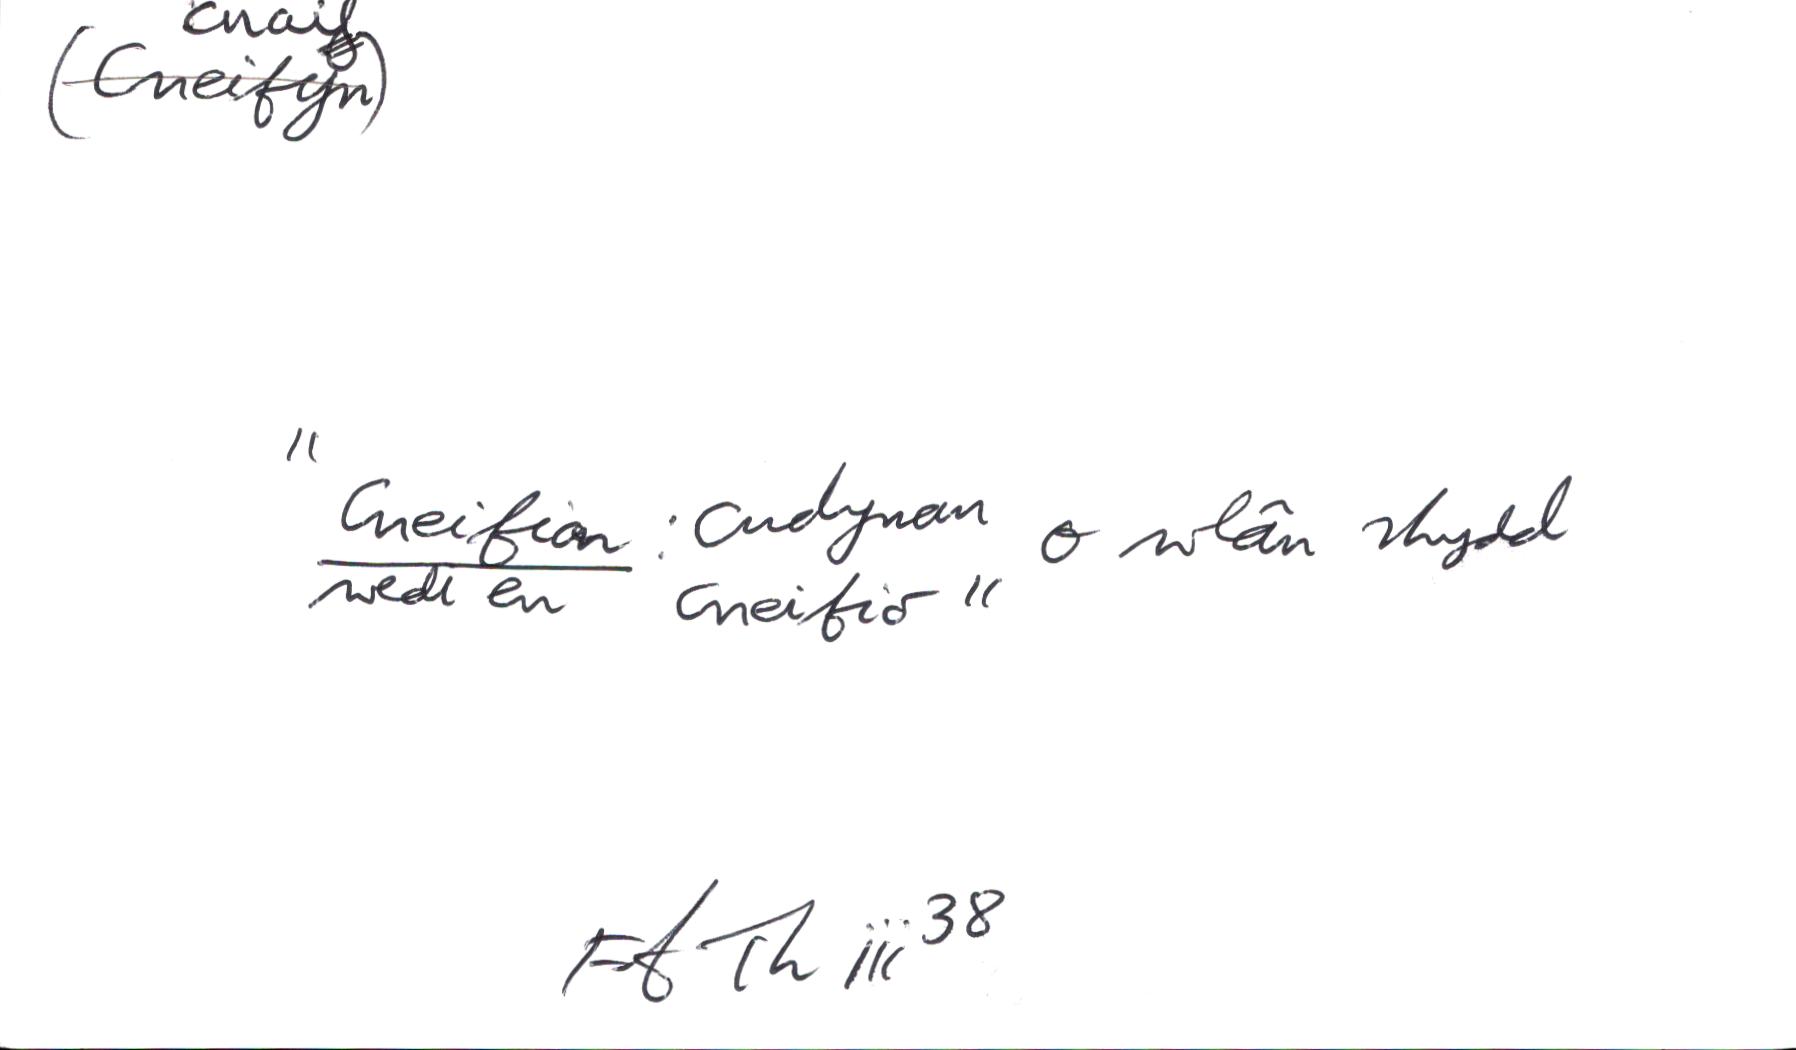 cnaif
(Cneifyn)
"Cneifion : cudynau o wlân rhydd
wedi eu cneifio"
Ff Th iii 38